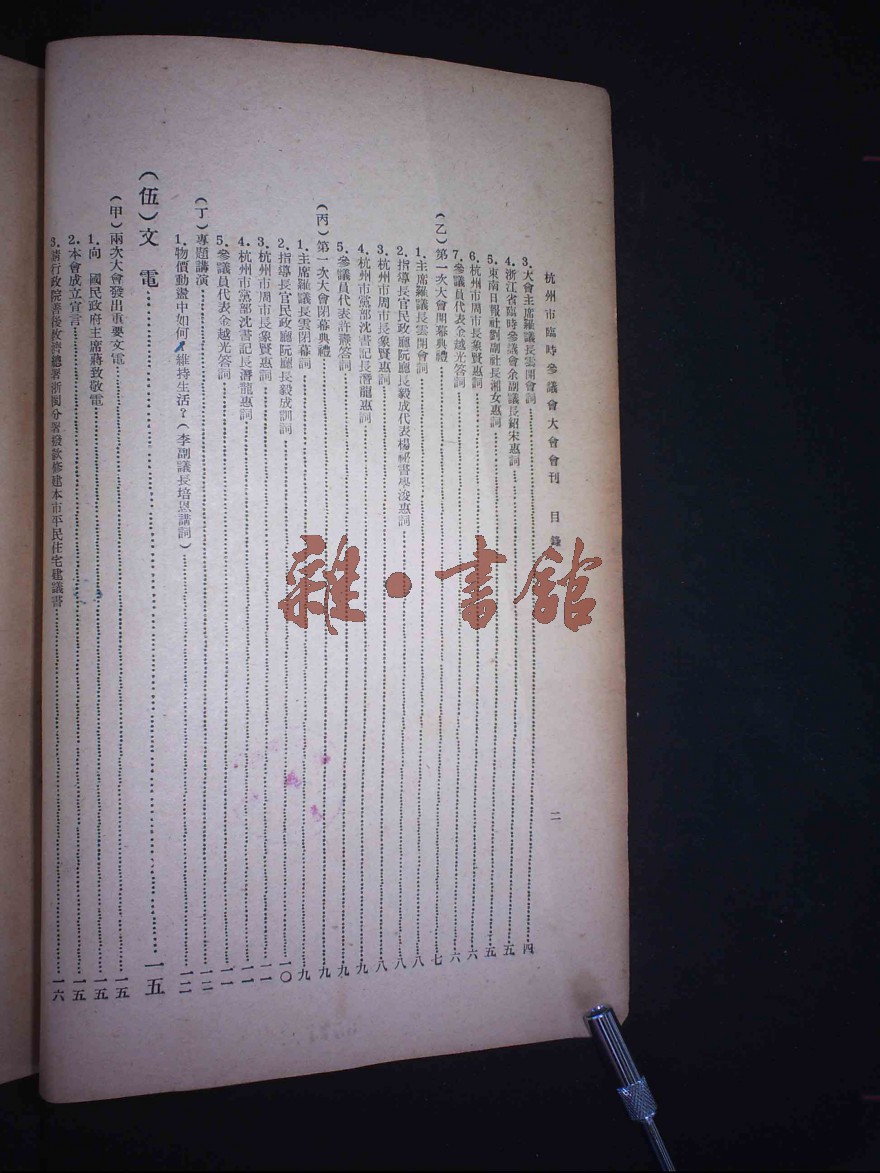 杭州市臨時參議會大會會刊 目錄 二
3.大會主席羅議長雲開會詞 四
4.浙江省臨時參議會余副議長紹宋惠詞 五
5.東南日報社劉副社長湘女惠詞 五
6.杭州市周市長象賢惠詞 六
7.參議員代表金越光答詞 六
(乙)第一次大會開幕典禮 七
1.主席羅議長雲開會詞 八
2.指導長官民政廳阮廳長毅成代表楊祕書學浚惠詞 八
3.杭州市周市長象賢惠詞 八
4.杭州市黨部沈書記長潛龍惠詞 九
5.參議員代表許燾答詞 九
(丙)第一次大會閉幕典禮 九
1.主席羅議長雲閉幕詞 九
2.指導長官民政廳阮廳長毅成訓詞 一〇
3.杭州市周市長象賢惠詞 一一
4.杭州市黨部沈書記長潛龍惠詞 一一
5.參議員代表金越光答詞 一一
(丁)專題講演 一二
1.物價動盪中如何維持生活?(李副議長培恩講詞) 一二
(伍)文電 一五
(甲)兩次大會發出重要文電 一五
1.向 國民政府主席蔣致敬電 一五
2.本會成立宣言 一五
3.請行政院善後救濟總署浙閩分署發款修建本市平民住宅建議書 一六
雜·書館